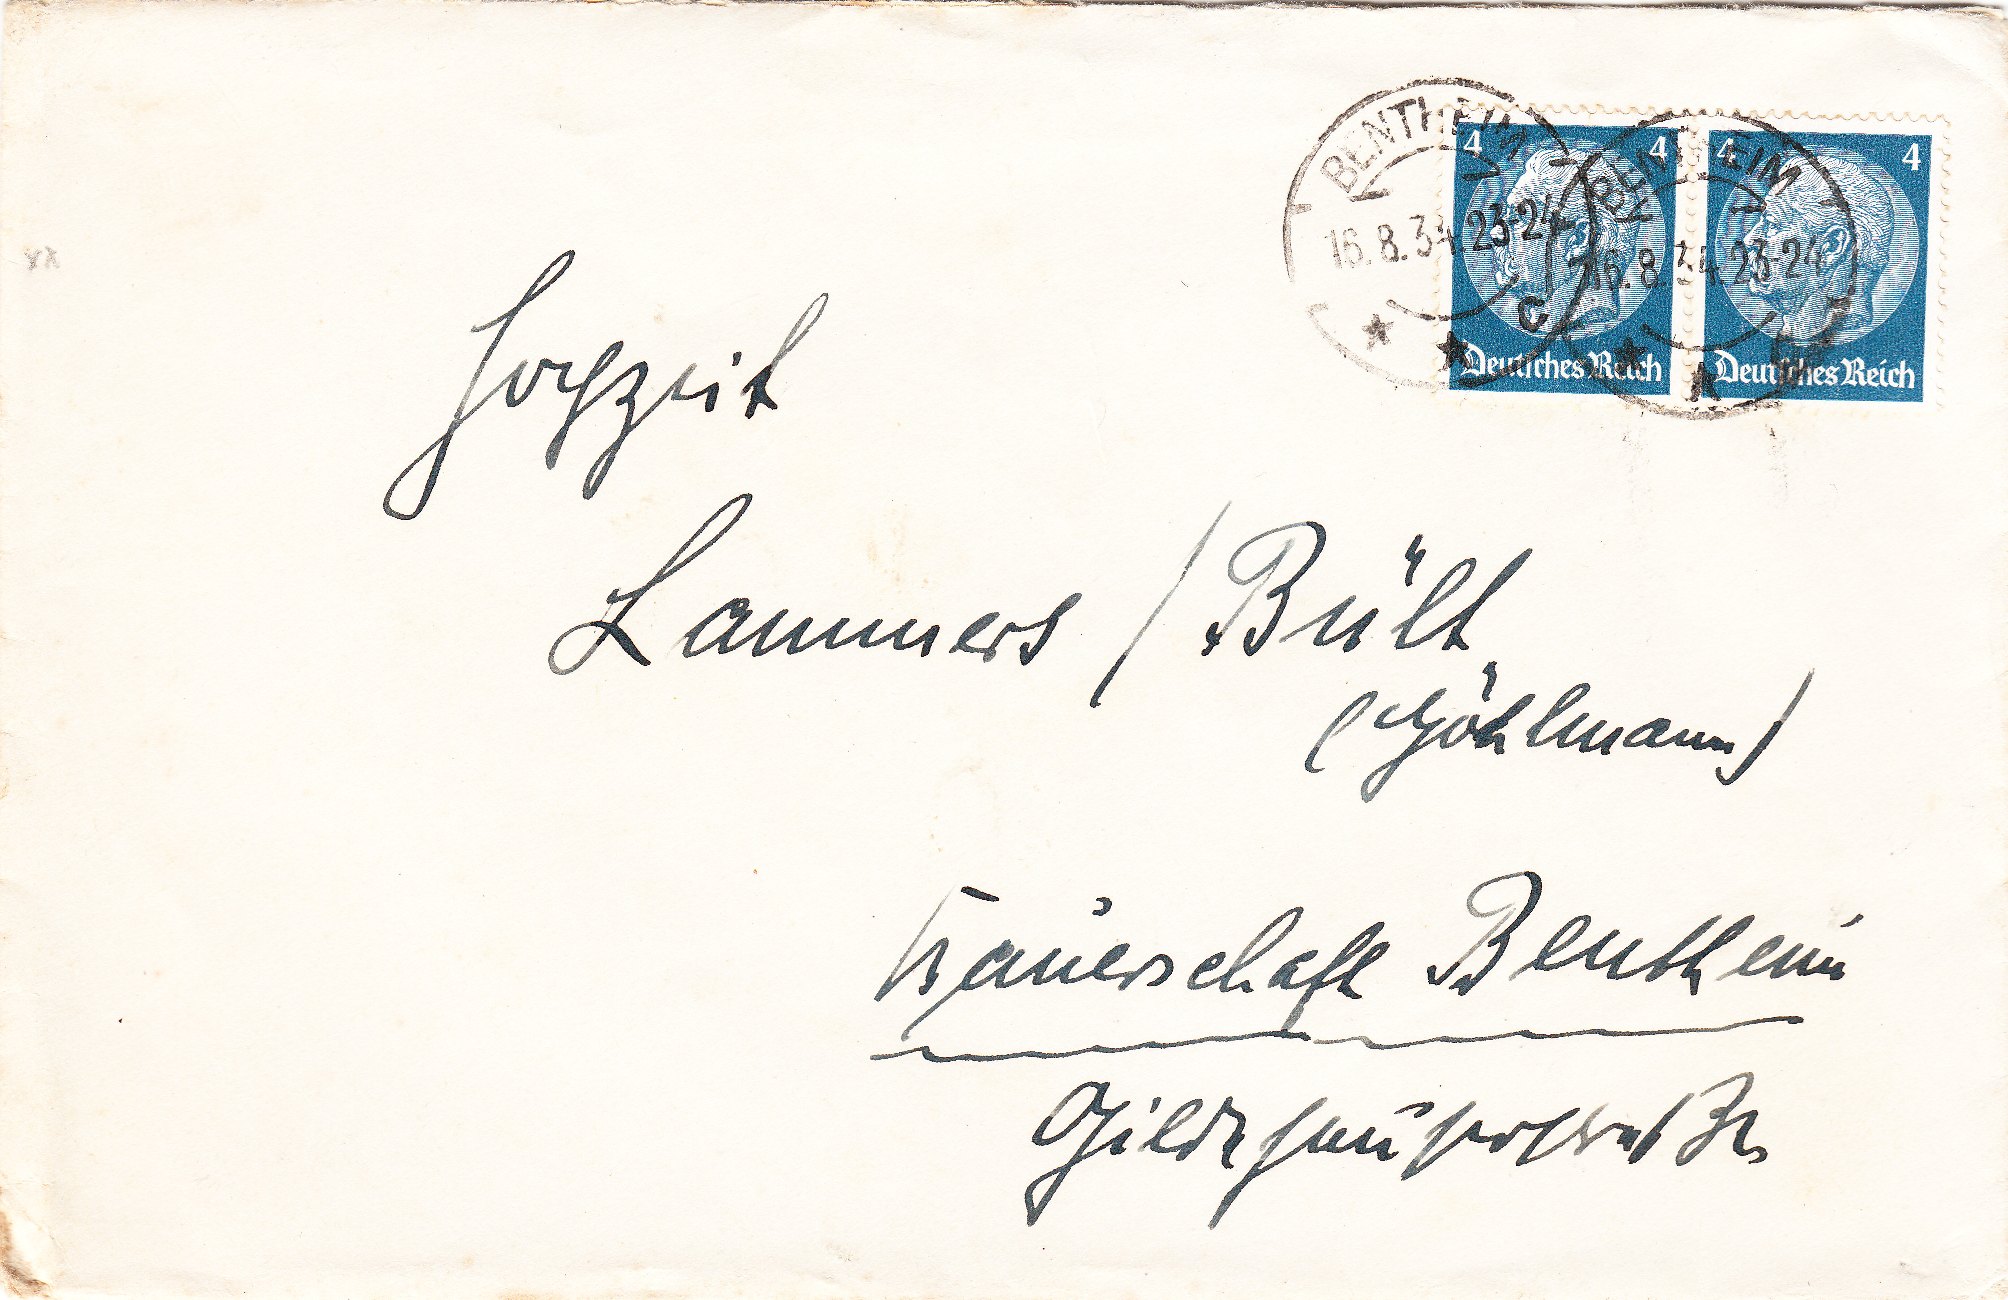 BENTHEIM
16.8.34.23-24
C
BENTHEIM
16.8.34.23-24
4 4
Deutsches Reich
4 4
Deutsches Reich
Hochzeit
Lammers / Bült
(Göhlmann)
Bauerschaft Bentheim
Gildehauserstraße